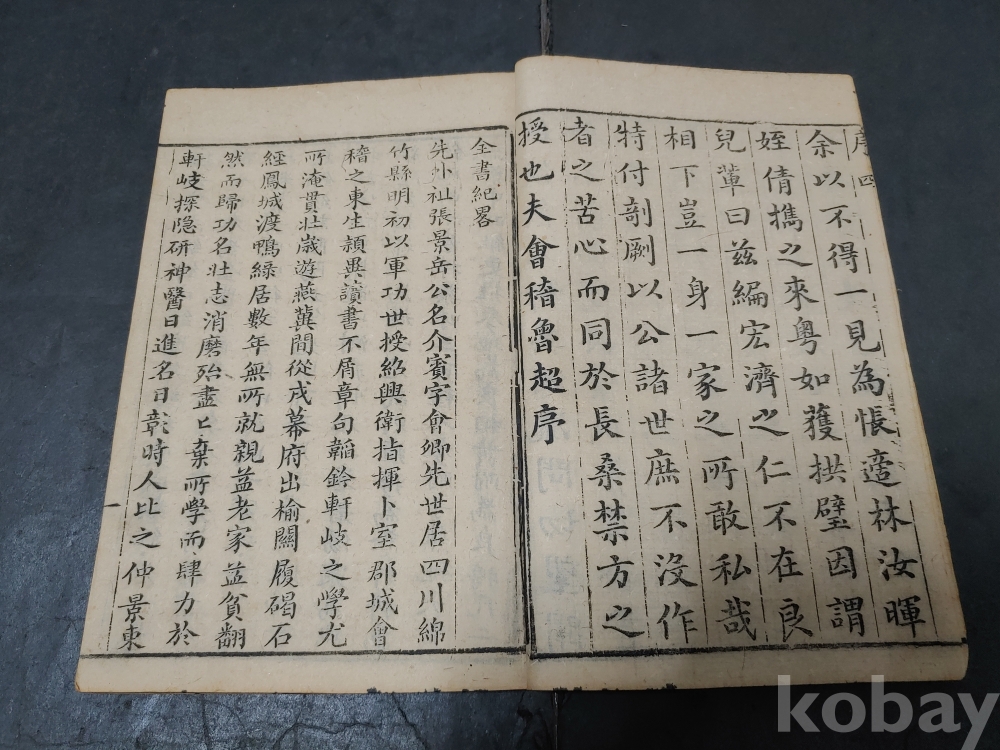 序四
余以不得一見為悵適林汝暉
姪倩攜之來粵如獲拱璧因謂
兒輩曰茲編宏濟之仁不在良
相下豈一身一家之所敢私哉
特付剞劂以公諸世庶不沒作
者之苦心而同於長桑禁方之
授也夫會稽魯超序
全書紀畧
先外祖張景岳公名介賓字會卿先世居四川綿
竹縣明初以軍功世授紹興衛指揮卜室郡城會
稽之東生頴異讀書不屑章句韜鈐軒岐之學尤
所淹貫壯歲遊燕冀間從戎幕府出榆關履碣石
經鳳城渡鴨綠居數年無所就親益老家益貧翻
然而歸功名壯志消磨殆盡盡棄所學而肆力於
軒岐探隐研神醫日進名日彰時人比之仲景東
一
kobay